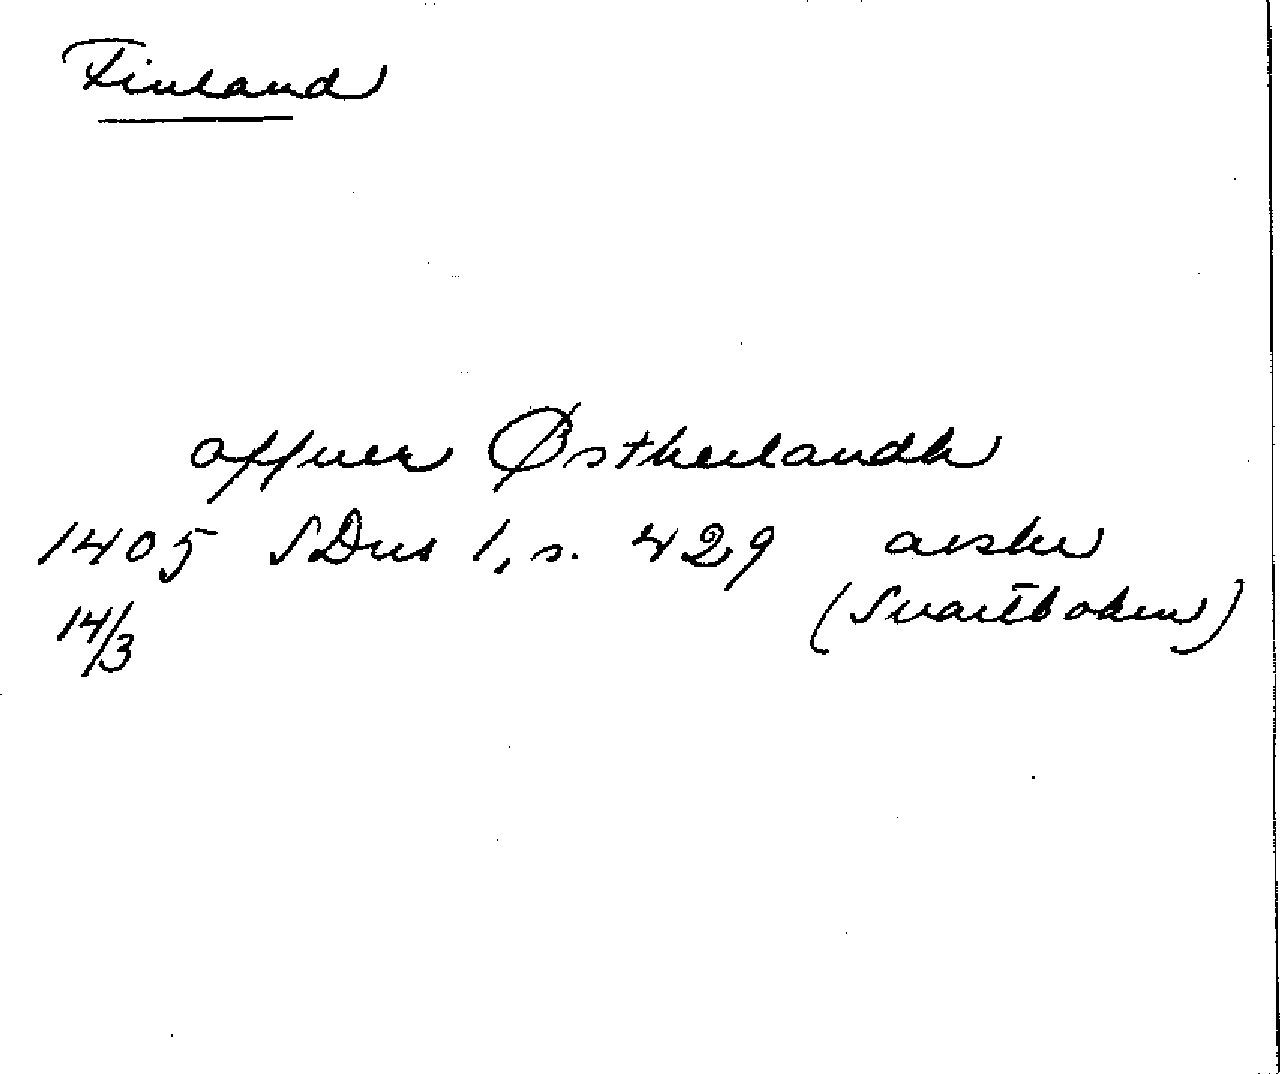 Finland
affuer Østherlandh
1405 SDns 1, s. 429 avskr
14/3 (Svartboken)